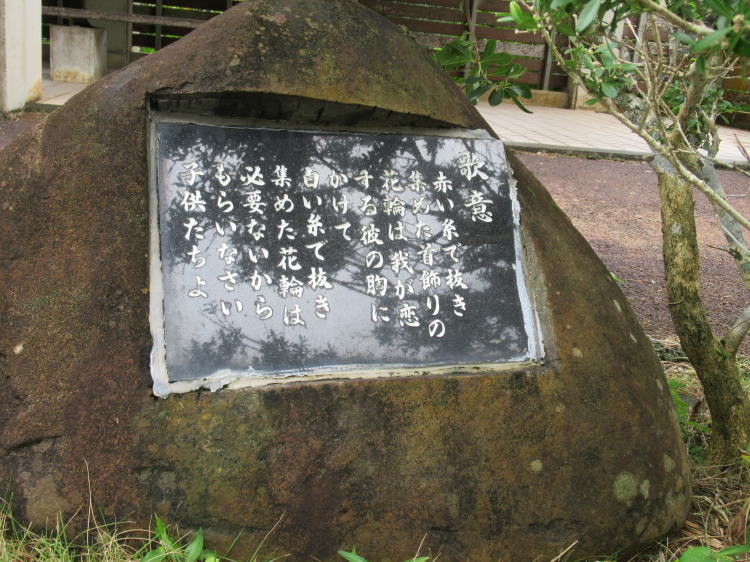 歌意
赤い糸で抜き
集めた首飾りの
花輪は我が恋
する彼の胸に
かけて
白い糸で抜き
集めた花輪は
必要ないから
もらいなさい
子供たちよ